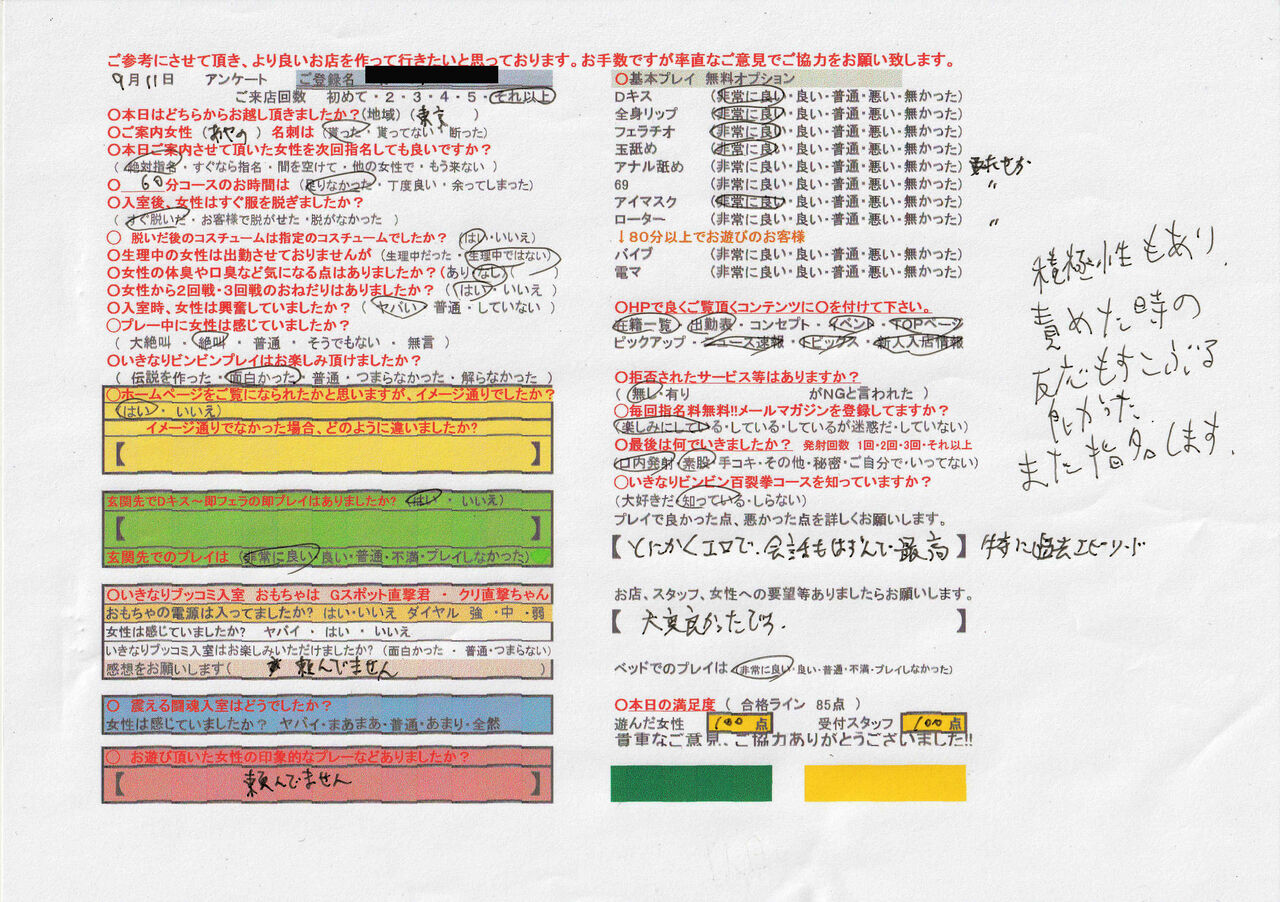 ご参考にさせて頂き、より良いお店を作って行きたいと思っております。お手数ですが率直なご意見でご協力をお願い致します。
9月11日 アンケート ご登録名
ご来店回数 初めて・2・3・4・5・それ以上
〇本日はどちらからお越し頂きましたか？(地域) (東京 )
〇ご案内女性 (あやの ) 名刺は (貰った・貰ってない・断った)
〇本日ご案内させて頂いた女性を次回指名しても良いですか？
( 絶対指名・すぐなら指名・間を空けて・他の女性で・もう来ない )
〇 60分コースのお時間は (足りなかった・丁度良い・余ってしまった)
〇入室後、女性はすぐ服を脱ぎましたか？
( すぐ脱いだ・お客様で脱がせた・脱がなかった )
〇 脱いだ後のコスチュームは指定のコスチュームでしたか？ (はい・いいえ)
〇生理中の女性は出勤させておりませんが (生理中だった・生理中ではない)
〇女性の体臭や口臭など気になる点はありましたか？(あり・なし)( )
〇女性から2回戦・3回戦のおねだりはありましたか？ (はい・いいえ )
〇入室時、女性は興奮していましたか？ ( ヤバい・普通・していない )
〇プレー中に女性は感じていましたか？
( 大絶叫・絶叫・普通・そうでもない・無言 )
〇いきなりビンビンプレイはお楽しみ頂けましたか？
( 伝説を作った・面白かった・普通・つまらなかった・解らなかった )
〇ホームページをご覧になられたかと思いますが、イメージ通りでしたか？
(はい・ いいえ)
イメージ通りでなかった場合、どのように違いましたか?
【 】
玄関先でDキス～即フェラの即プレイはありましたか？ (はい ・ いいえ)
【 】
玄関先でのプレイは (非常に良い・良い・普通・不満・プレイしなかった)
〇いきなりブッコミ入室 おもちゃは Gスポット直撃君 ・ クリ直撃ちゃん
おもちゃの電源は入ってましたか? はい・いいえ ダイヤル 強 ・中 ・弱
女性は感じていましたか? ヤバイ ・ はい ・ いいえ
いきなりブッコミ入室はお楽しみいただけましたか? (面白かった ・ 普通・つまらない)
感想をお願いします( 頼んでません )
〇 震える闘魂入室はどうでしたか？
女性は感じていましたか？ ヤバイ・まあまあ・普通・あまり・全然
〇 お遊び頂いた女性の印象的なプレーなどありましたか？
【 頼んでません 】
〇基本プレイ 無料オプション
Dキス (非常に良い・良い・普通・悪い・無かった)
全身リップ (非常に良い・良い・普通・悪い・無かった)
フェラチオ (非常に良い・良い・普通・悪い・無かった)
玉舐め (非常に良い・良い・普通・悪い・無かった)
アナル舐め (非常に良い・良い・普通・悪い・無かった)
69 (非常に良い・良い・普通・悪い・無かった) 〃
アイマスク (非常に良い・良い・普通・悪い・無かった)
ローター (非常に良い・良い・普通・悪い・無かった) 〃
↓80分以上でお遊びのお客様
バイブ (非常に良い・良い・普通・悪い・無かった)
電マ (非常に良い・良い・普通・悪い・無かった)
〇HPで良くご覧頂くコンテンツに〇を付けて下さい。
在籍一覧・出勤表・コンセプト・イベント・TOPページ
ピックアップ・ニュース速報・トピックス・新人入店情報
〇拒否されたサービス等はありますか？
(無し・有り がNGと言われた )
〇毎回指名料無料!!メールマガジンを登録してますか？
(楽しみにしている・している・しているが迷惑だ・していない)
〇最後は何でいきましたか？ 発射回数 1回・2回・3回・それ以上
(口内発射・素股・手コキ・その他・秘密・ご自分で・いってない)
〇いきなりビンビン百裂拳コースを知っていますか？
(大好きだ・知っている・しらない)
プレイで良かった点、悪かった点を詳しくお願いします。
【とにかくエロで、会話もはずんで最高】 特に過去エピソード
お店、スタッフ、女性への要望等ありましたらお願いします。
【 大変良かったです. 】
ベッドでのプレイは (非常に良い・良い・普通・不満・プレイしなかった)
〇本日の満足度 ( 合格ライン 85点 )
遊んだ女性 100 点 受付スタッフ 100 点
貴重なご意見、ご協力ありがとうございました!!
積極性もあり、
責めた時の
反応もすこぶる
良かった
また指名します.